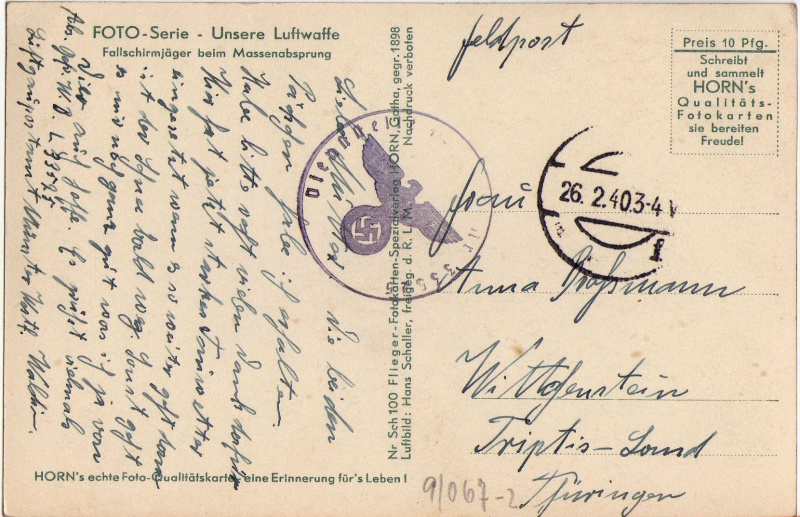 FOTO-Serie - Unsere Luftwaffe
Fallschirmjäger beim Massenabsprung
Feldpost
Preis 10 Pfg.
Schreibt
und sammelt
HORN's
Qualitäts-
Fotokarten
sie bereiten
Freude!
26.2.40.3-4 V
f
Frau
Anna Roßmann
Wittchenstein
Triptis-Land
Thüringen
Nr Sch 100 Flieger-Fotokarten-Spezialverlag HORN, Gotha, gegr. 1898
Luftbild: Hans Schaller, freigeg. d. R. L. M. Nachdruck verboten
Liebe Mutter die beiden
habe ich erhalten.
Habe bitte recht vielen Dank dafür.
Hier ist jetzt starkes Tauwetter
eingesetzt wenn es so weiter geht dann
ist der Schnee bald weg. Sonst geht
es mir noch ganz gut was ich ja von
Dir auch hoffe. Es grüßt vielmals
Walter.
Luftgaupostamt Münster Westf.
HORN's echte Foto-Qualitätskarte eine Erinnerung für's Leben!
9/067-2